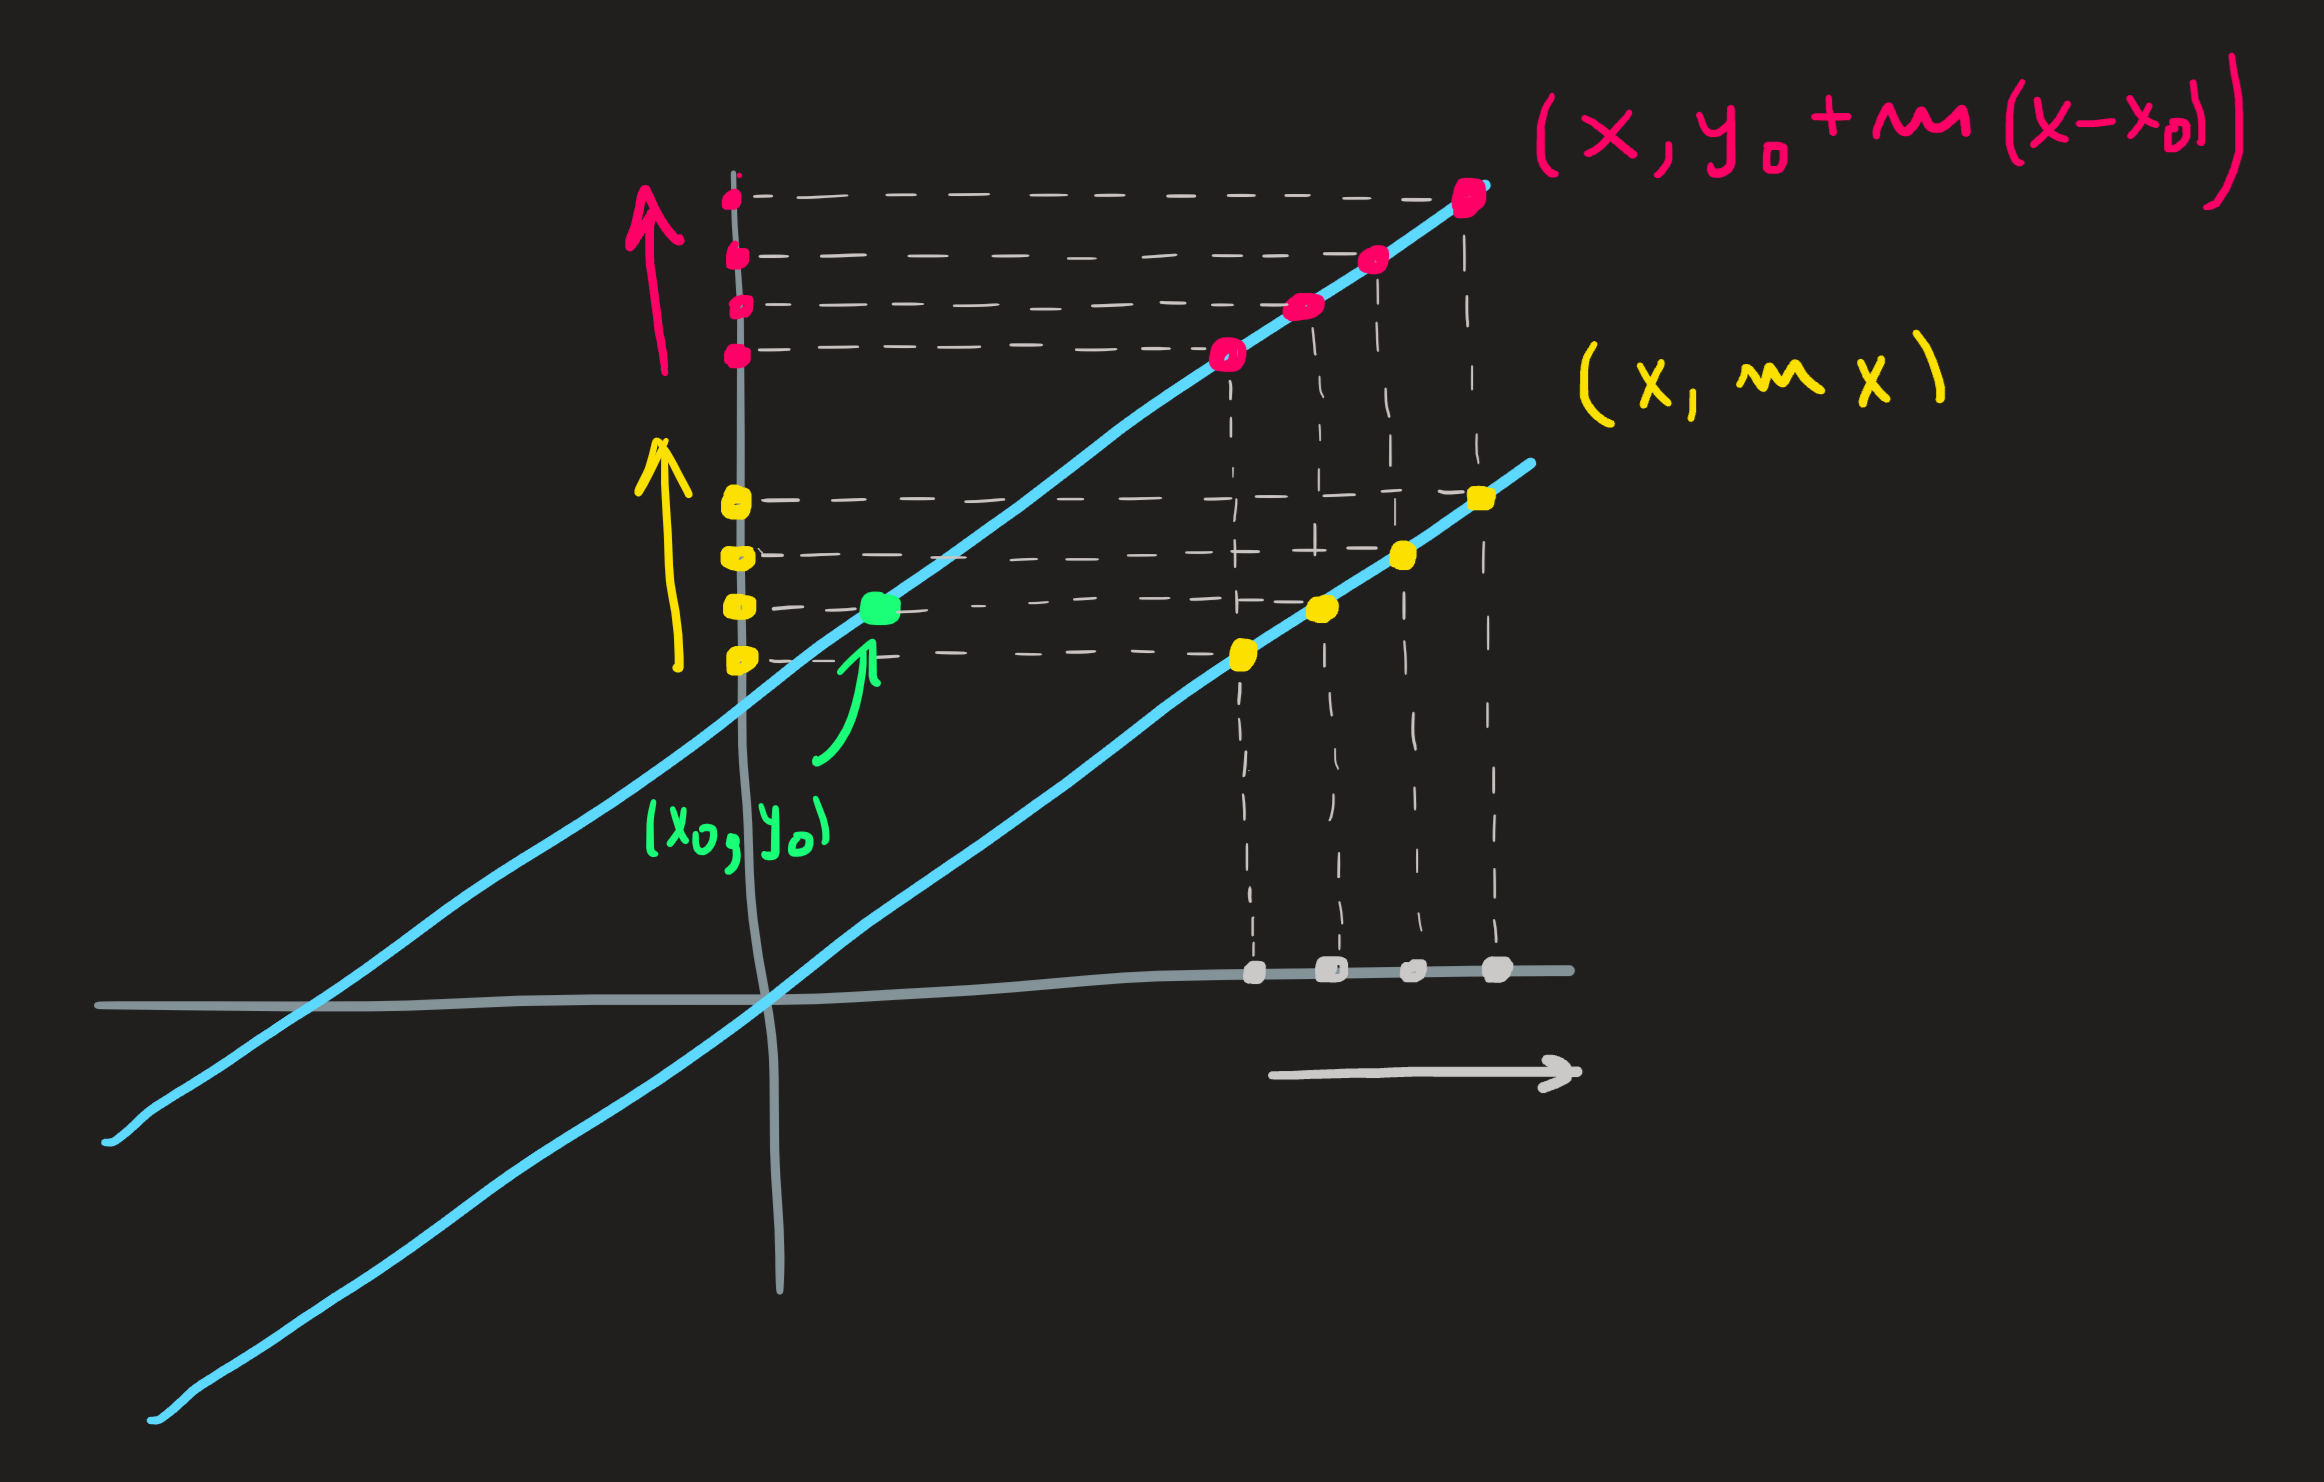 (x, y₀ + m (x-x₀))
(x, m x)
(x₀, y₀)